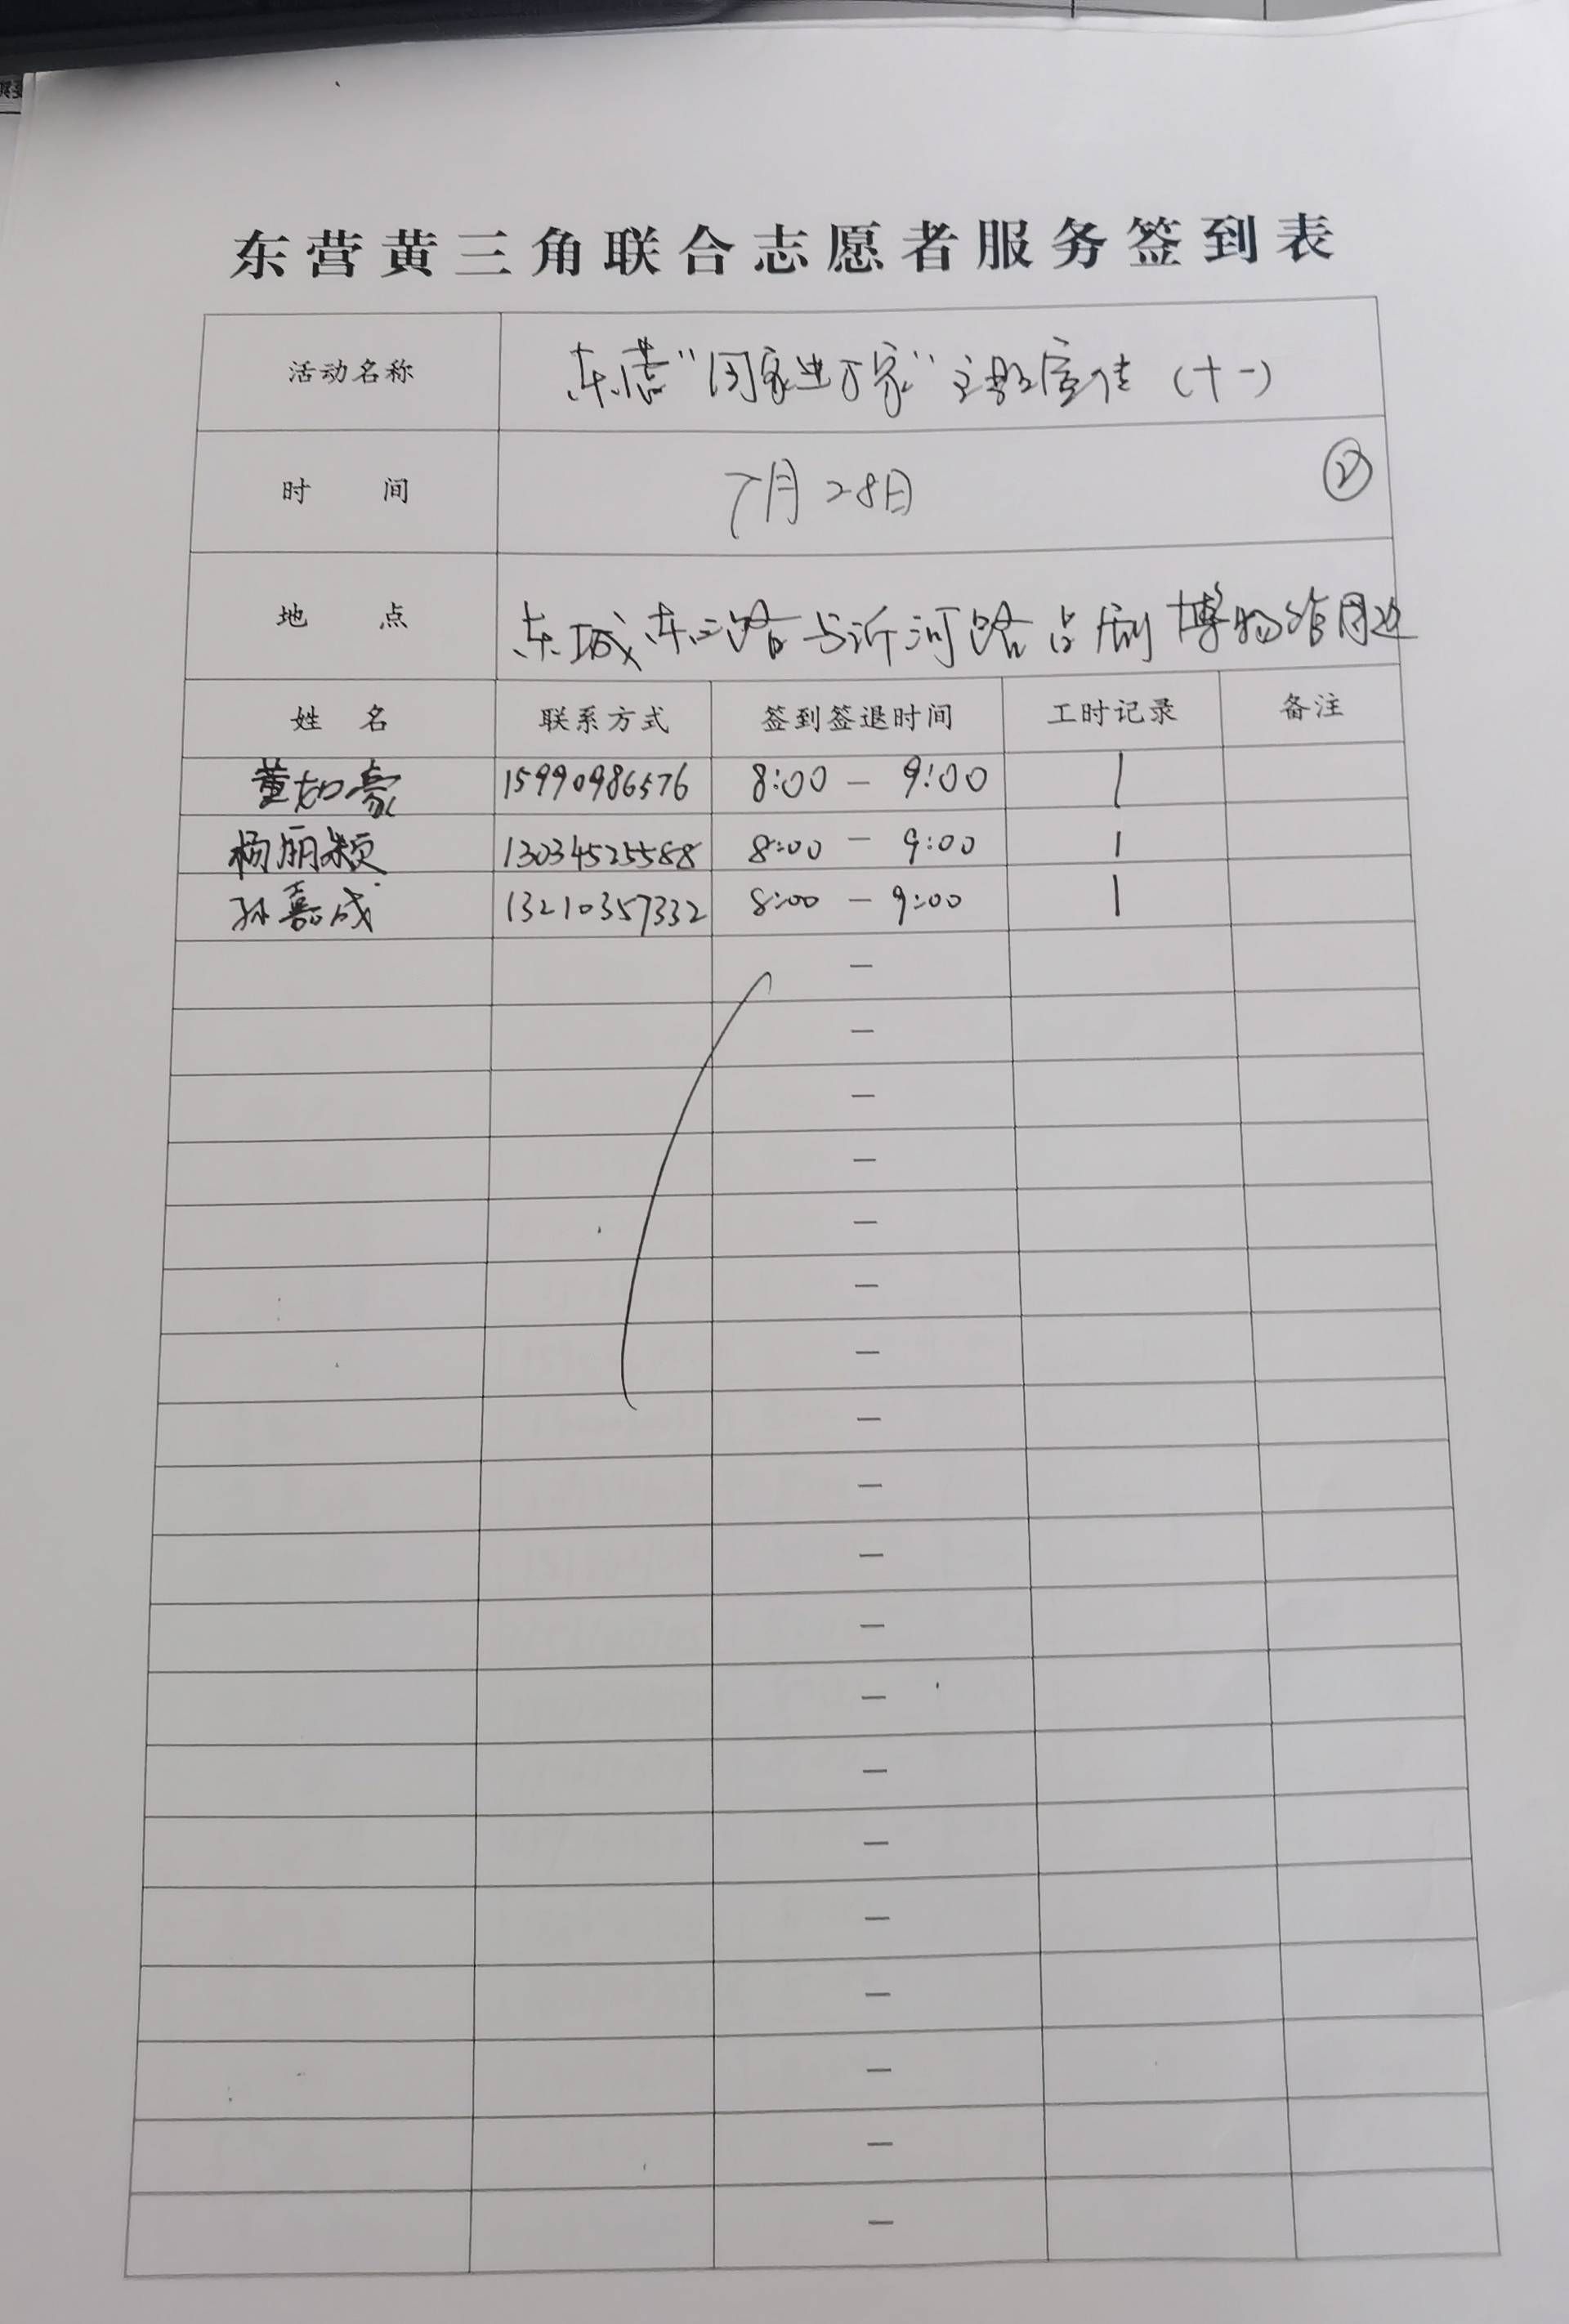 东营黄三角联合志愿者服务签到表
活动名称 东营“国家进万家”主题宣传（十一）
时 间 7月28日 ②
地 点 东城东二路与沂河路吕剧博物馆周边
姓 名 联系方式 签到签退时间 工时记录 备注
董如豪 15990986576 8:00 — 9:00 1
杨丽颖 13034525588 8:00 — 9:00 1
孙嘉成 13210357332 8:00 — 9:00 1
—
—
—
—
—
—
—
—
—
—
—
—
—
—
—
—
—
—
—